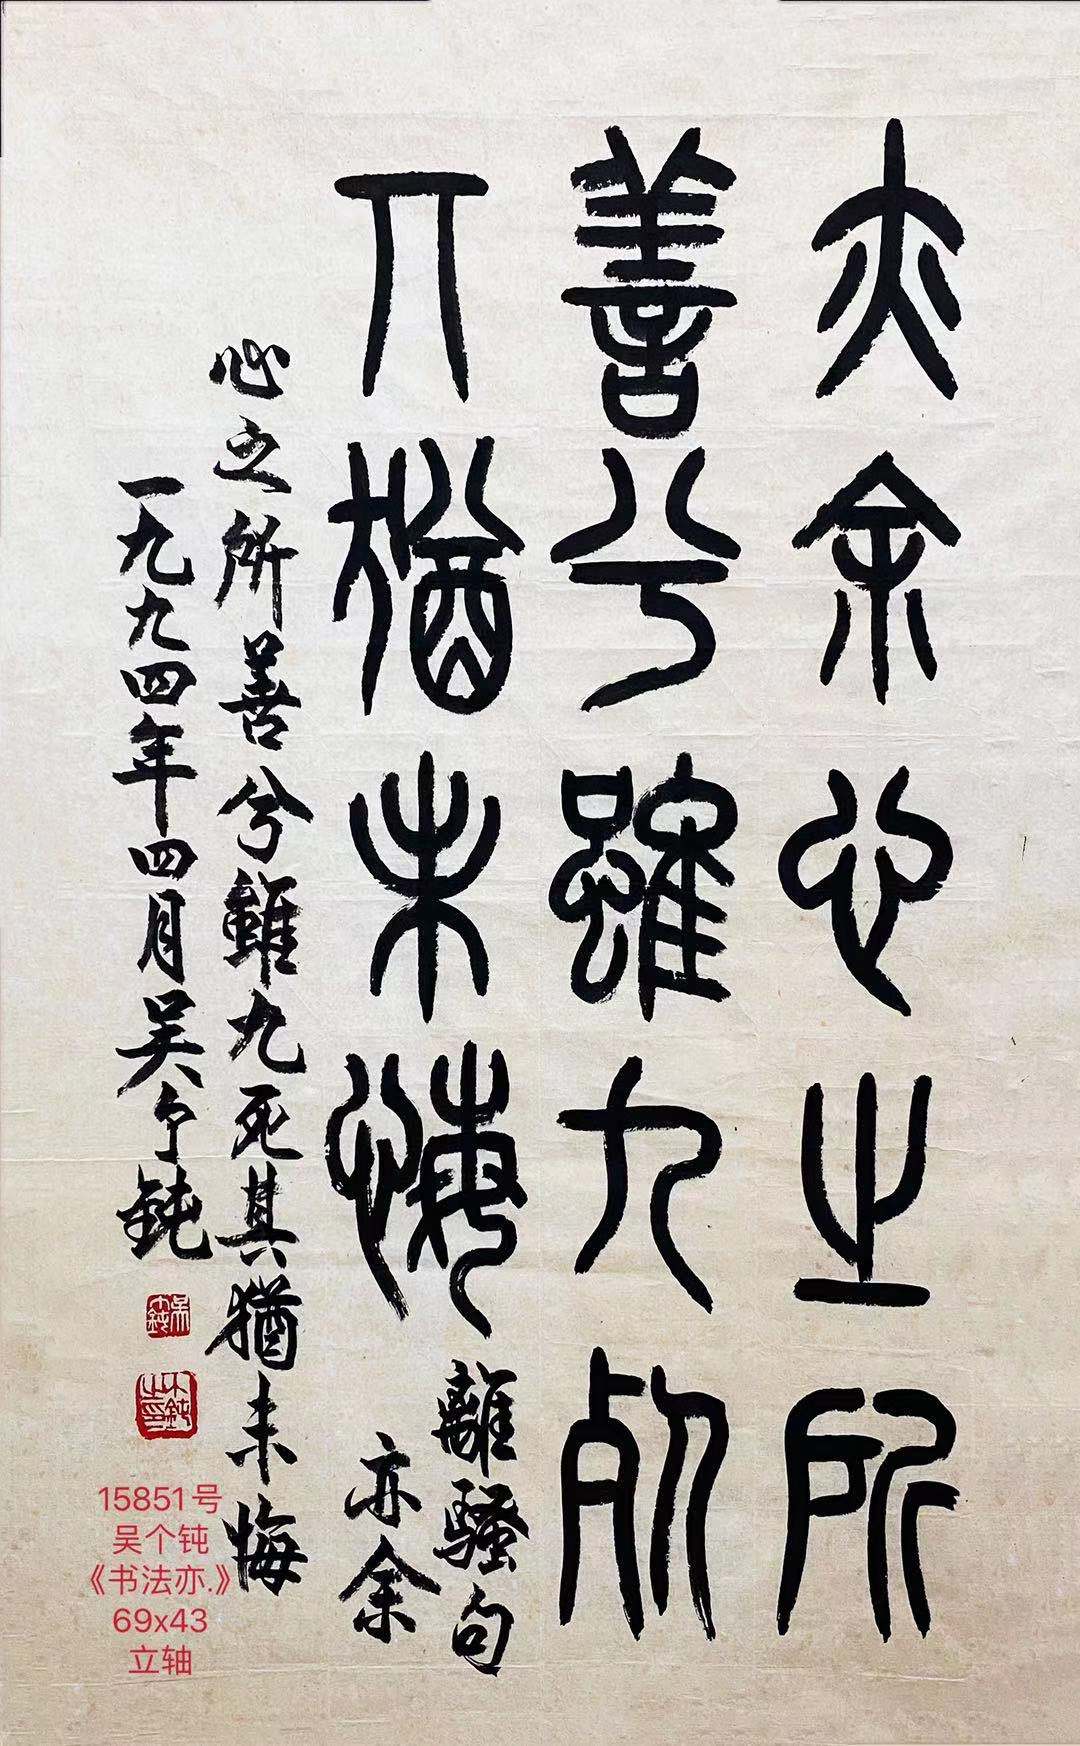 亦余心之所
善兮雖九死
丌猶未悔
離騷句
亦余
心之所善兮雖九死其猶未悔
一九九四年四月吴个鈍
15851号
吴个钝
《书法亦.》
69x43
立轴